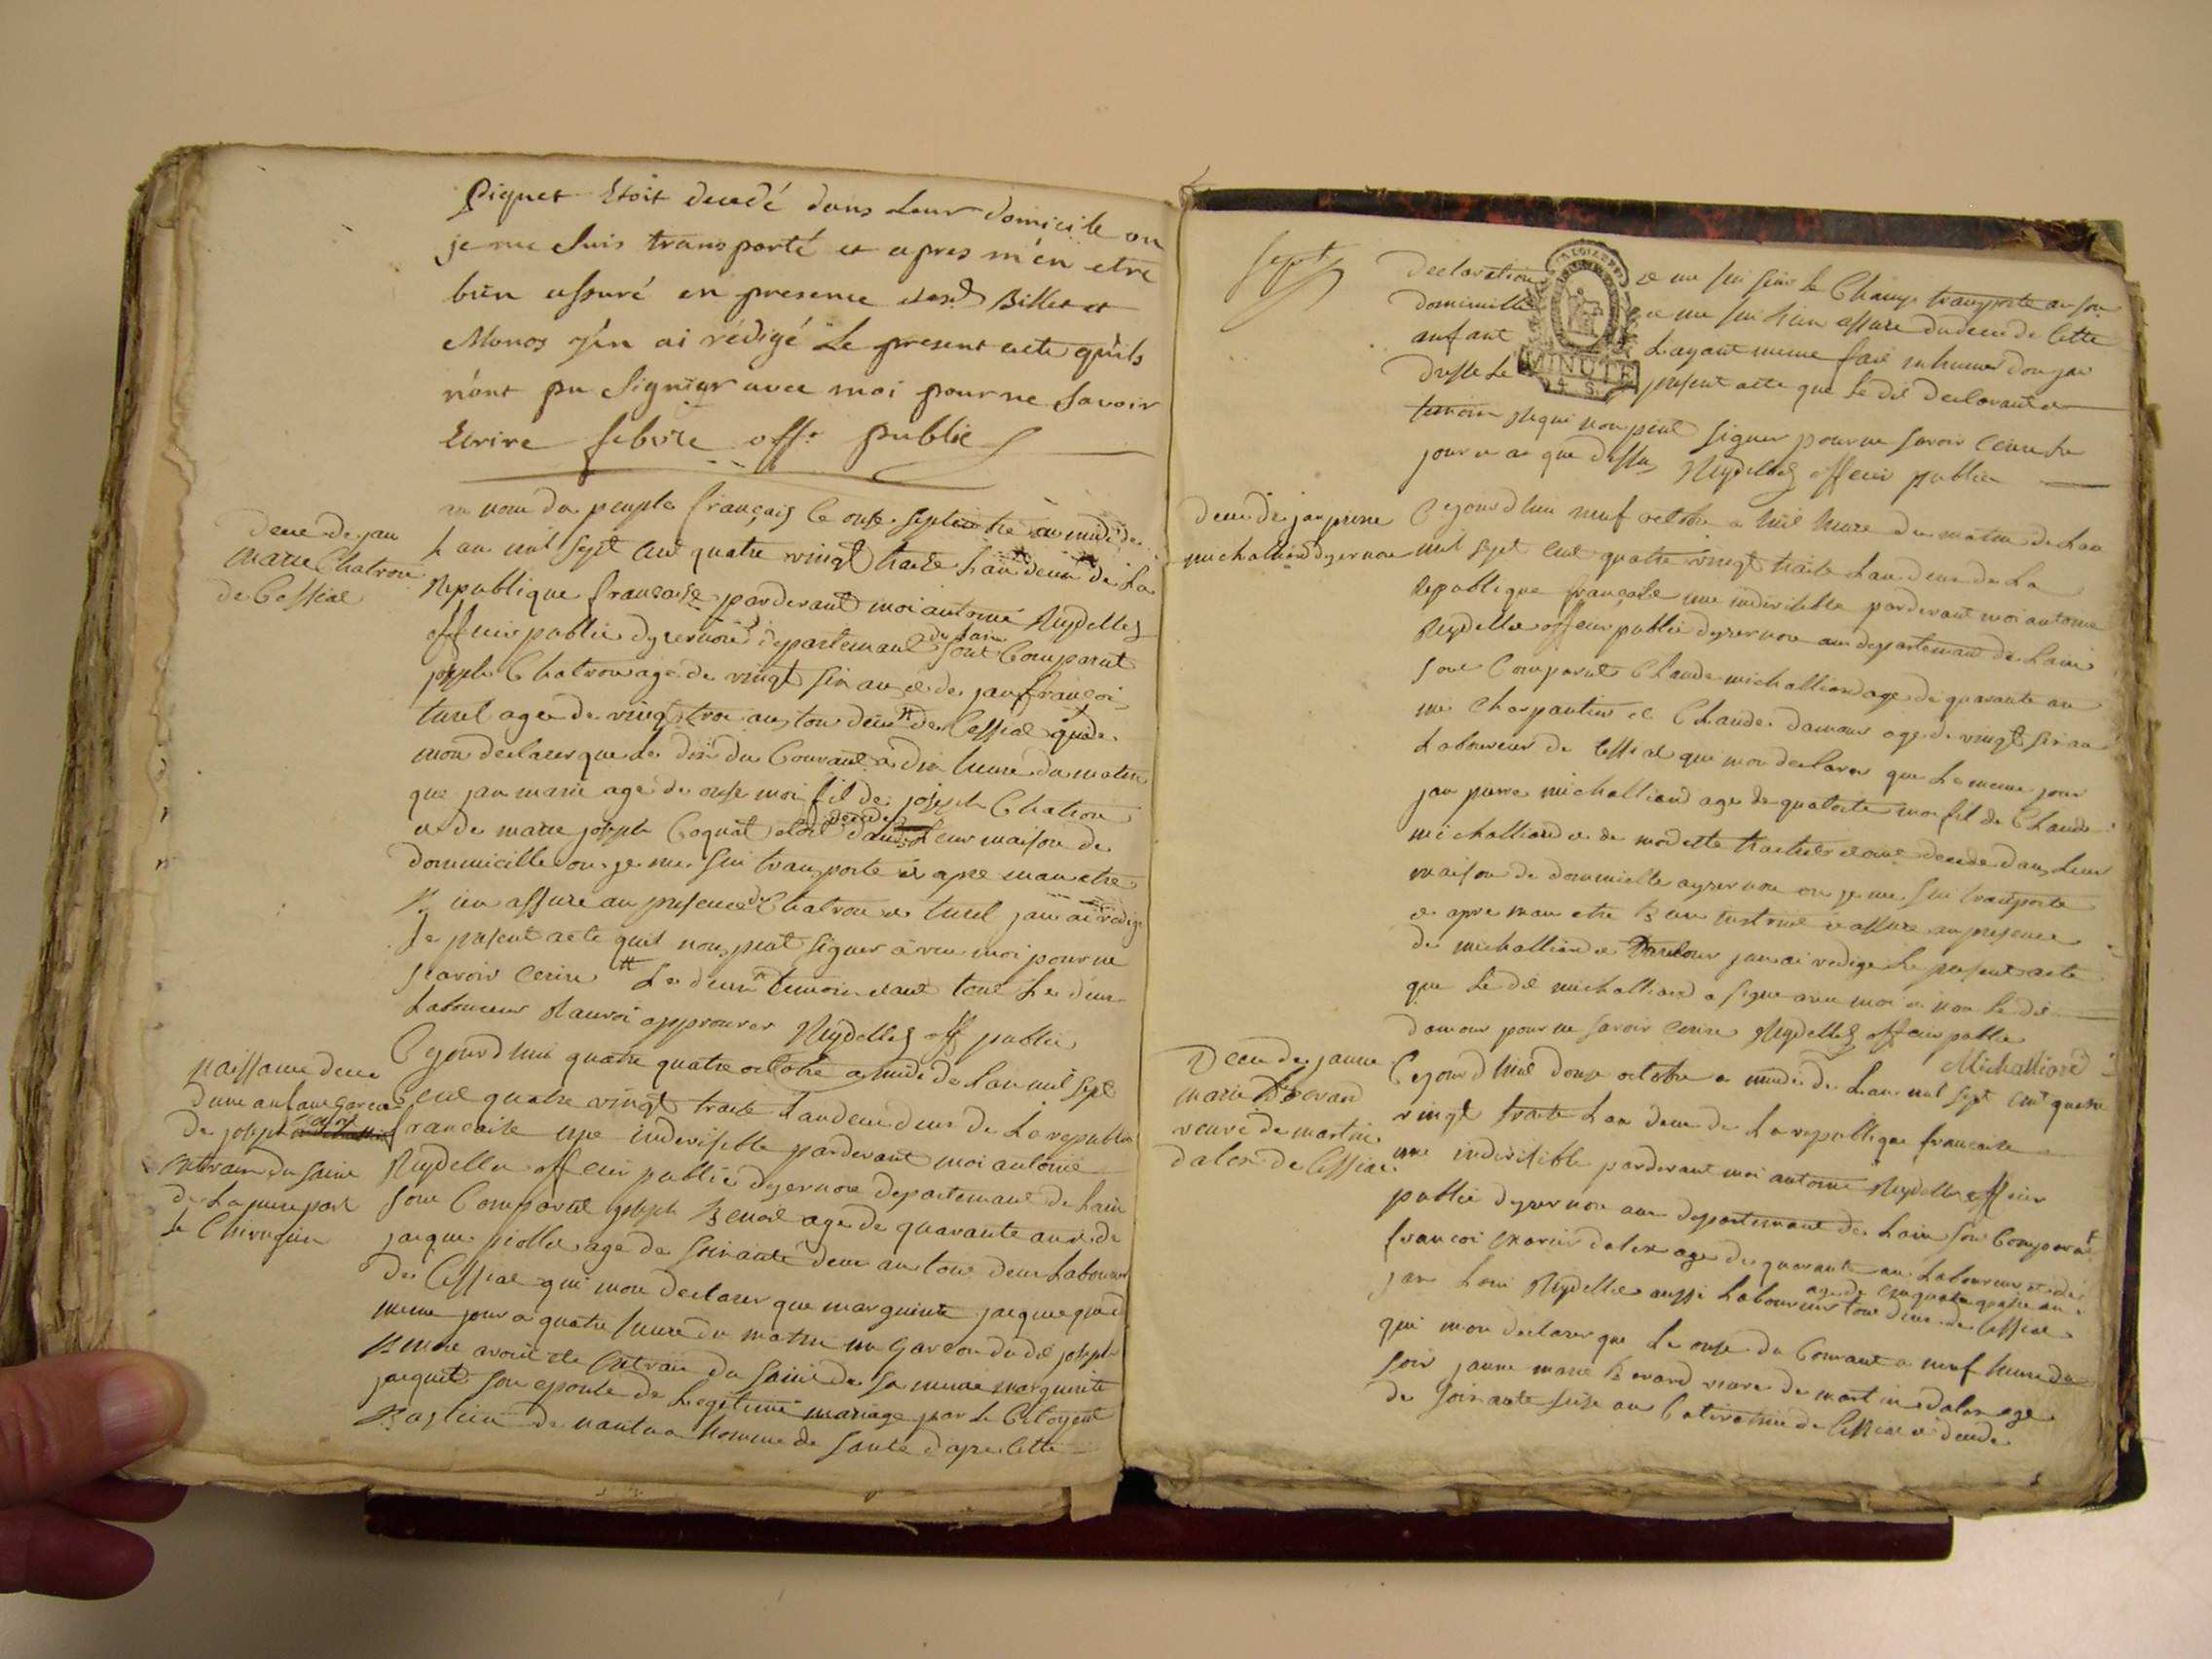 Piquet Etoit decedé dans Leur domicile ou
je me suis transporté et apres m'en etre
bien assuré en presence desd. Billet et
Monos j'en ai rédigé Le present acte qu'ils
n'ont pu signer avec moi pour ne savoir
Ecrire febvre off. public
dece de jan
marie Chatron
de Cessiat
au nom du peuple français Ce onse septembre a midi de
L an mil sept cent quatre vingt traite L an deux de La
Republique francaise pardevant moi antoine Reydellet
officier public dyzernore departemant de Lain sont Comparut
joseph Chatron age de vingt six an et de jan francoi
turel age de vingt troi an tou deux # de Cessiat qui
mon declarer que le dix du Courant a dix heure du matin
que jan marie age de onse moi fil de joseph Chatron
et de marie joseph Coquat etoit decede dans Leur maison de
dommicille ou je me sui transporte et apre man etre
bien assure au presence de Chatron et turel jan ai redige
Le present acte quil nont peut signer avec moi pour ne
scavoir Ecrire # Le deux temoin etant tout Le deux
Laboureur Reydellet off public
naissance dece
dune anfant garcon
de joseph
Extrait du saint
de La mere par
Le Chirugien
Cejourd hui quatre quatre octobre a midi de Lan mil sept
Cent quatre vingt traite Lan deux deux de La republique
francaise une indivisible pardevant moi antoine
Reydellet officier public dyzernore departemant de Lain
sont Comparut joseph Benoit age de quarante an et de
jacque piollet age de soixante deux an tous deux Laboureur
de Cessiat qui mon declarer que marguerite jacquet
meme jour a quatre heure du matin un garcon du dit joseph
avoit ete Extrait du saint de sa mere marguerite
jacquet son epouse de Legitime mariage par Le Citoyent
de nantua homme de sante dapre Cette
sept
declaration et me sui sur Le Champ transporte au son
dommicille et me sui bien assure du dece de Cette
anfant Layant meme fait inhumer don jai
dresse Le present acte que Le dit declarant et
MINUTE
4 S.
temoin requi non peut signer pour ne savoir Ecrire Le
jour et an que dessus Reydellet officier public
dece de jan pierre
michalliard dyzernore
Cejourd hui neuf octobre a huit heure du matin de Lan
mil sept cent quatre vingt traite L an deux de La
Republique francaise une indivisible pardevant moi antoine
Reydellet officier public dyzernore au departemant de Lain
sont Comparut Claude michalliard age de quarante an
me Charpantier et Claude damour age de vingt six an
Laboureur de Cessiat qui mon declarer que Le meme jour
jan pierre michalliard age de quatorse moi fil de Claude
michalliard et de modeste etant decede dans Leur
maison de dommicille ayzernore ou je me sui transporte
et apre man etre bien instruit et assure au presence
de michalliard et damour jan ai redige Le present acte
que Le dit michalliard a signe avec moi et non Le dit
damour pour ne savoir Ecrire Reydellet officier public
Michalliard
Dece de janne
marie Berard
veuve de martin
dalex de Cessiat
Cejourd huit douse octobre a midi de Lan mil sept cent quatre
vingt traite Lan deux de La republique francaise
une indivisible pardevant moi antoine Reydellet officier
public dyzernore au departemant de Lain son Comparut
francoi xavier dalex age de quarante an Laboureur et de
jan Loui Reydellet aussi Laboureur age de cinquate quatre an tous deux de Cessiat
qui mon declarer que Le onse du Courant a neuf heure du
soir janne marie Berard veuve de martin dalex age
de soixante seise an Cativatrice de Cessiat et decede